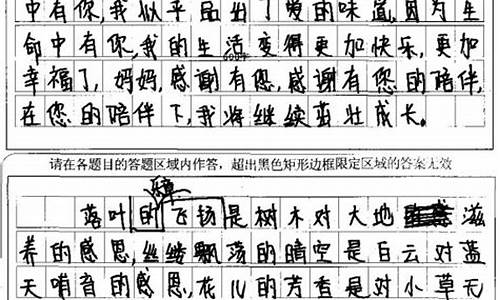 中有你,我似乎品出了爱的味道,因为生
命中有你,我的生活变得更加快乐,更加
幸福了,妈妈,感谢有您,感谢有您的陪伴,
在您的陪伴下,我将继续茁壮成长。
请在各题目的答题区域内作答,超出黑色矩形边框限定区域的答案无效
落叶的飞扬是树木对大地滋
养的感恩,丝缕飘荡的晴空是白云对蓝
天哨音的感恩,花儿的芳香是对小草无